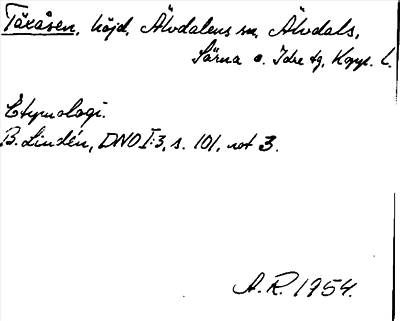 Täxåsen, höjd, Älvdalens sn, Älvdals,
Särna o. Idre tg, Kopp. l.
Etymologi.
B. Lindén, DNO I:3, s. 101, not 3.
A. R. 1954.